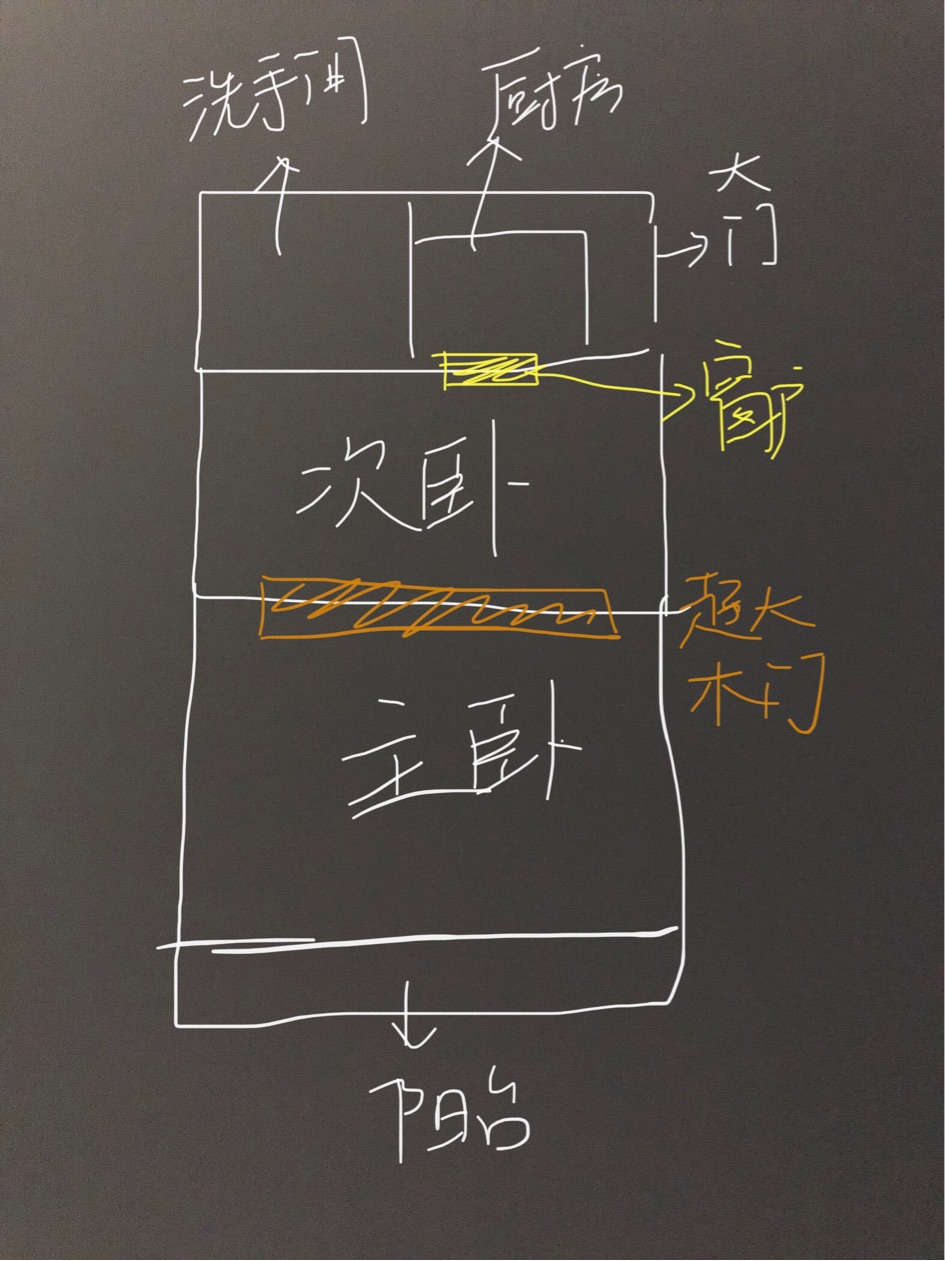 洗手间
厨房
大
门
窗户
次卧
超大
木门
主卧
阳台